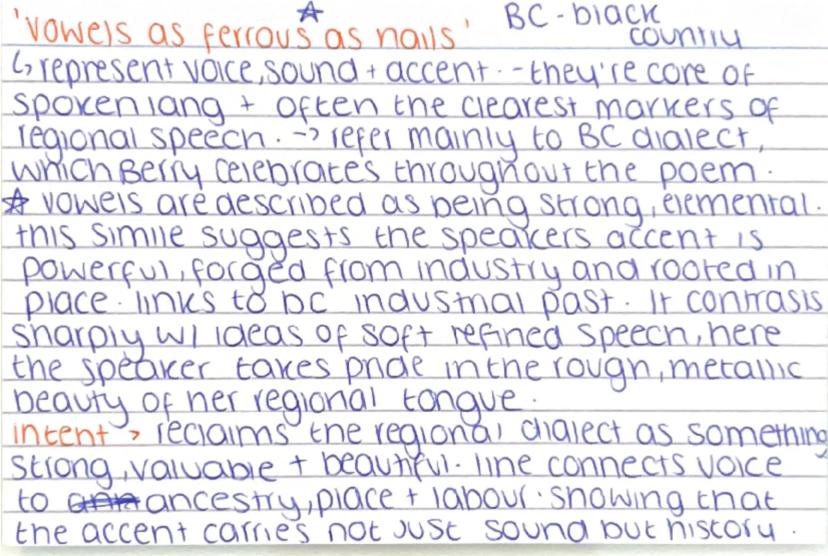 'vowels as ferrous as nails' ☆ BC - black
country
↳ represent voice, sound + accent. - they're core of
spoken lang + often the clearest markers of
regional speech. -> refer mainly to BC dialect,
which Berry celebrates throughout the poem.
☆ vowels are described as being strong, elemental.
this simile suggests the speakers accent is
powerful, forged from industry and rooted in
place. links to BC industrial past. It contrasts
sharply w/ ideas of soft refined speech, here
the speaker takes pride in the rough, metallic
beauty of her regional tongue.
intent > reclaims the regional dialect as something
strong, valuable + beautiful. line connects voice
to ancestry, place + labour. showing that
the accent carries not just sound but history.